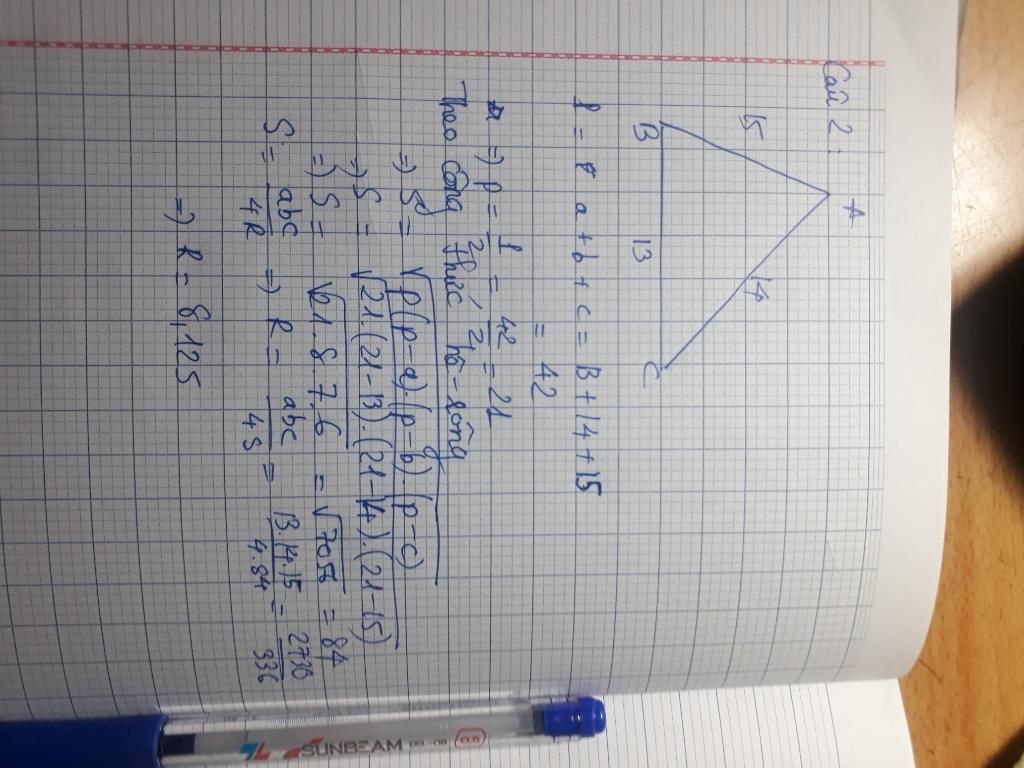 Câu 2:
A
15
14
B
13
C
P = a + b + c = 13 + 14 + 15
= 42
=> p = P/2 = 42/2 = 21
Theo công thức hê-rông
=> S = √p(p-a).(p-b).(p-c)
=> S = √21.(21-13).(21-14).(21-15)
=> S = √21.8.7.6 = √7056 = 84
S = abc/4R => R = abc/4S = 13.14.15/4.84 = 2730/336
=> R = 8,125
SUNBEAM